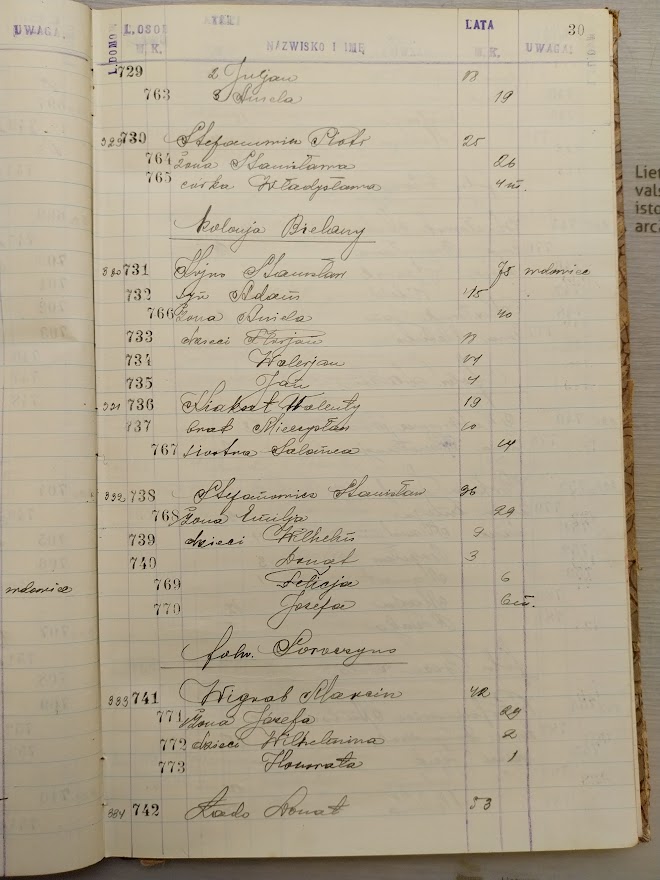 UWAGA.
L. DOMO
L. OSOB
LATA
30
M. K.
NAZWISKO I IMĘ
M. K.
UWAGA!
729 2 Juljan 18
763 3 Aniela 19
329 730 Stefanowicz Piotr 25
764 żona Stanisława 26
765 córka Władysława 4 m.
Kolonja Bielany
330 731 Stanisław 75 wdowiec
732 syn Adam 45
766 żona Aniela 40
733 dzieci Florjan
734 Walerjan 14
735 Jan
331 736 Walenty 19
737 brat Mieczysław 10
767 siostra Salomea 14
332 738 Stefanowicz Stanisław 36
768 żona Emilja 29
739 dzieci Wilhelm 9
740 Donat 3
769 Felicja 6
770 Józefa 6 m.
wdowiec
folw.
333 741 Marcin 42
771 żona Józefa 29
772 dzieci Wilhelmina 2
773 Honorata 1
334 742 Donat 53
Liet
vals
isto
arc